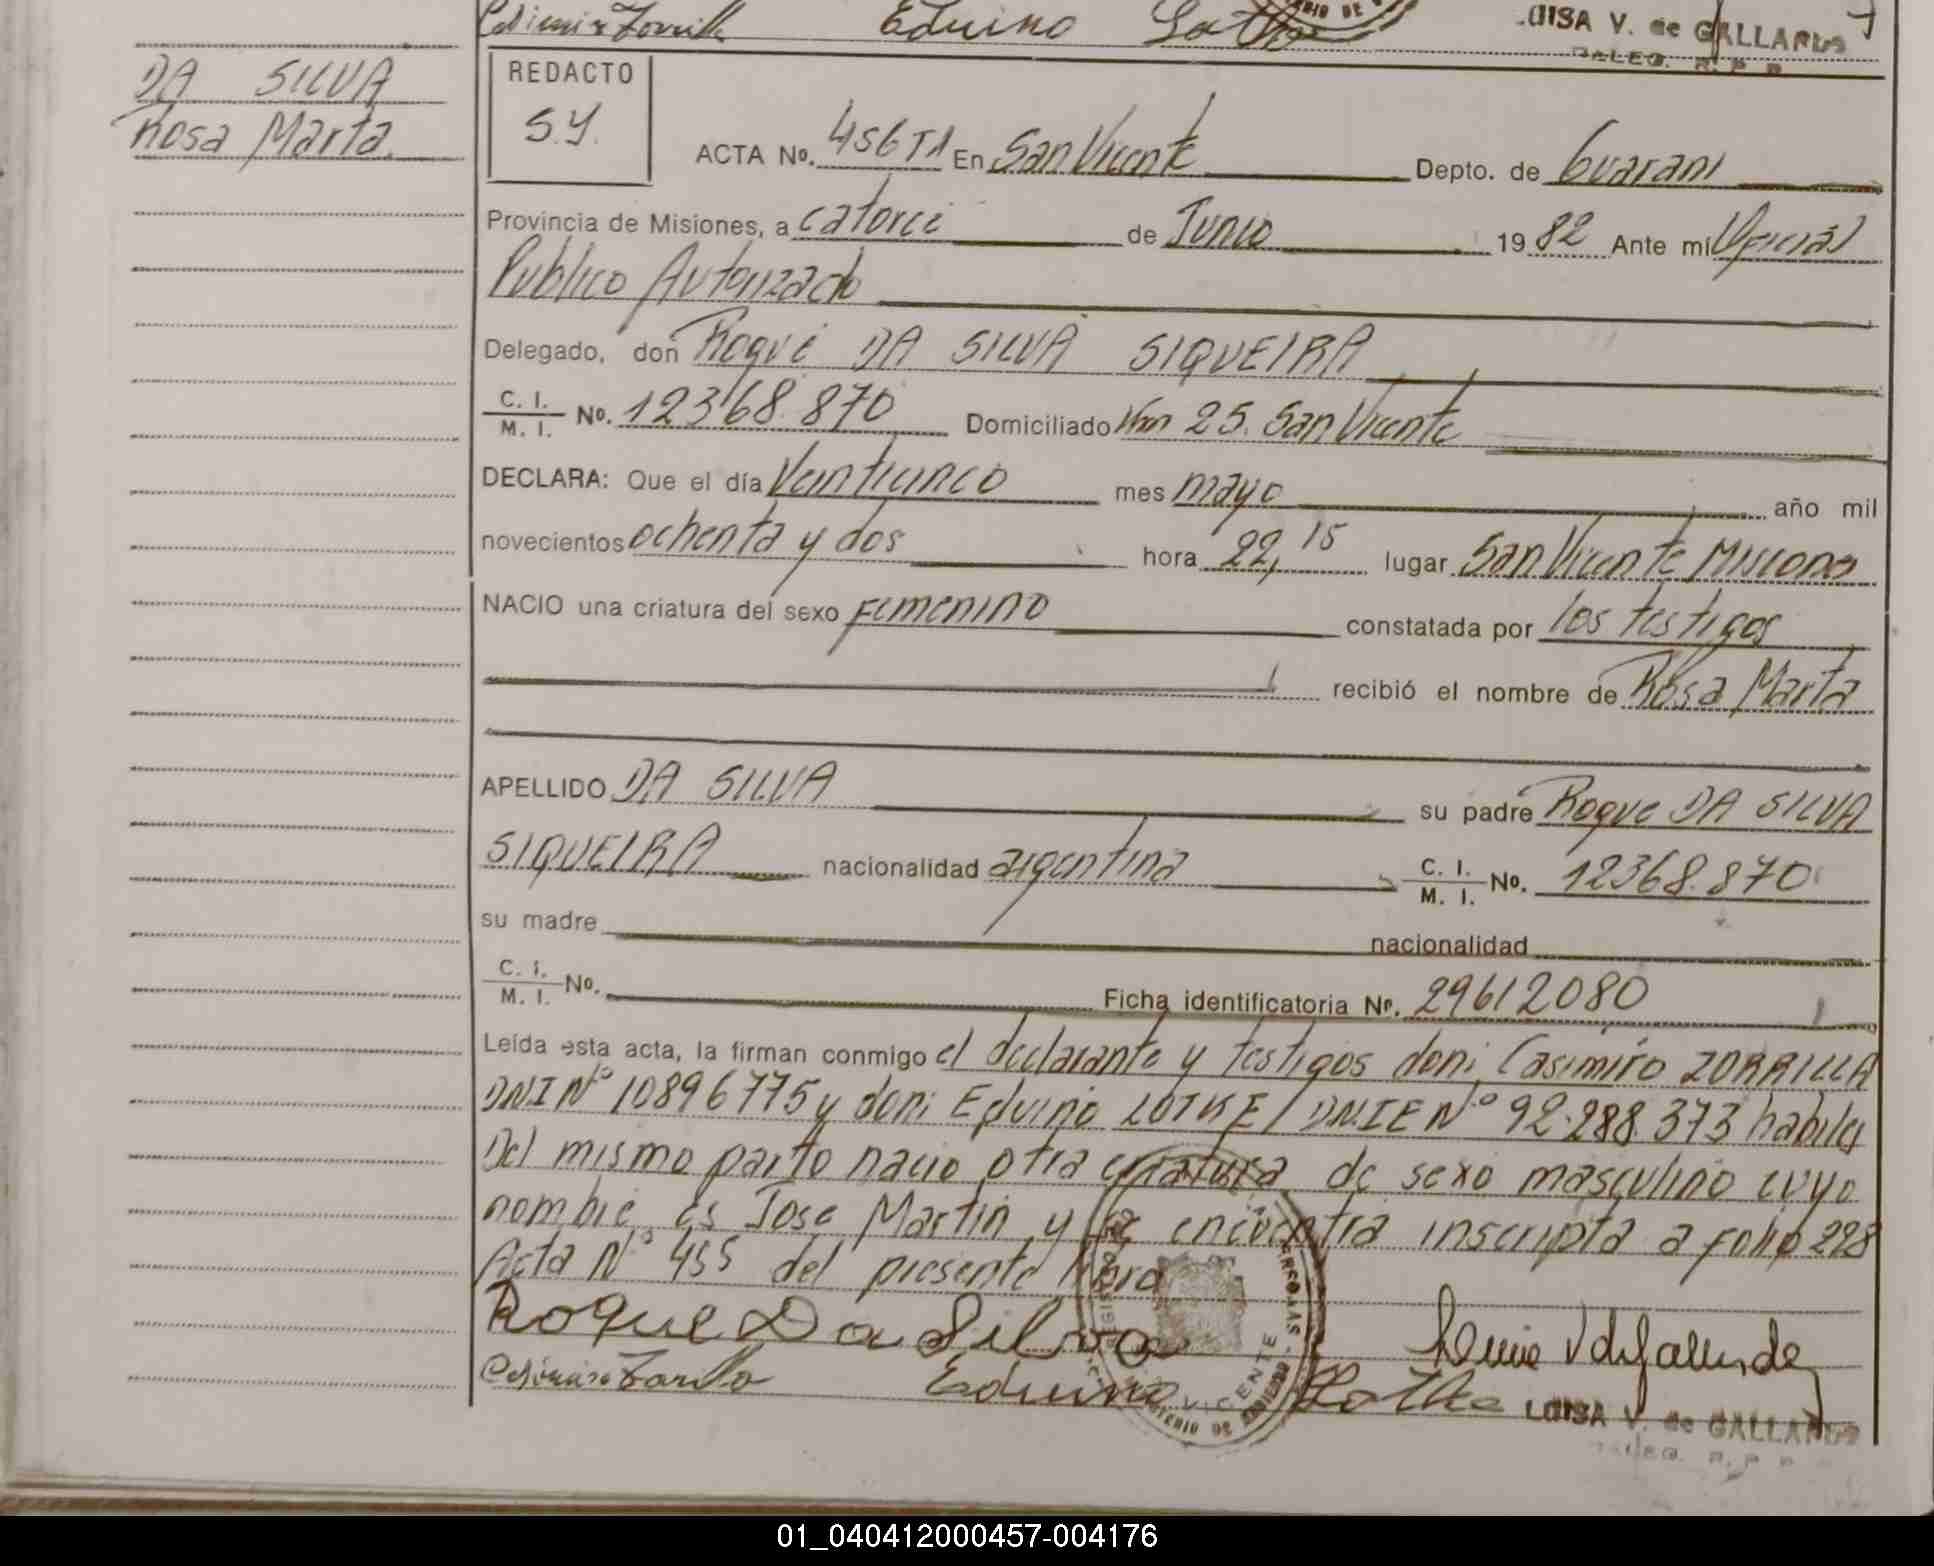 Casimiro Zorrilla Eduino Lothe LUISA V. de GALLARDO
DELEG. R. P. P.
DA SILVA
Rosa Marta.
REDACTO
S.Y.
ACTA No. 456 T1 En San Vicente Depto. de Guaraní
Provincia de Misiones, a catorce de Junio 1982 Ante mi Oficial
Publico Autorizado
Delegado, don Roque DA SILVA SIQUEIRA
C. I. / M. I. No. 12368.870 Domiciliado Km 25. San Vicente
DECLARA: Que el día Veinticinco mes mayo año mil
novecientos ochenta y dos hora 22,15 lugar San Vicente Misiones
NACIO una criatura del sexo Femenino constatada por los testigos
recibió el nombre de Rosa Marta
APELLIDO DA SILVA su padre Roque DA SILVA
SIQUEIRA nacionalidad argentina C. I. / M. I. No. 12368.870
su madre nacionalidad
C. I. / M. I. No. Ficha identificatoria No. 29612080
Leída esta acta, la firman conmigo el declarante y testigos don: Casimiro ZORRILLA
DNI N° 10896775 y don: Eduino LOTKE / DNIE N° 92.288.373 habiles
Del mismo parto nacio otra criatura de sexo masculino cuyo
nombre es Jose Martin y se encuentra inscripta a folio 228
Acta N° 455 del presente libro
Roque Da Silva
Casimiro Zorrilla Eduino
VICENTE
LUISA V. de GALLARDO
DELEG. R. P. P.
01_040412000457-004176